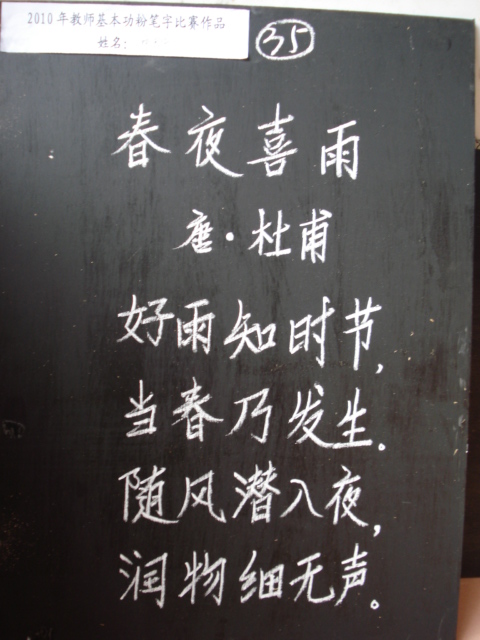 2010年教师基本功粉笔字比赛作品
姓名:
35
春夜喜雨
唐·杜甫
好雨知时节,
当春乃发生.
随风潜入夜,
润物细无声。